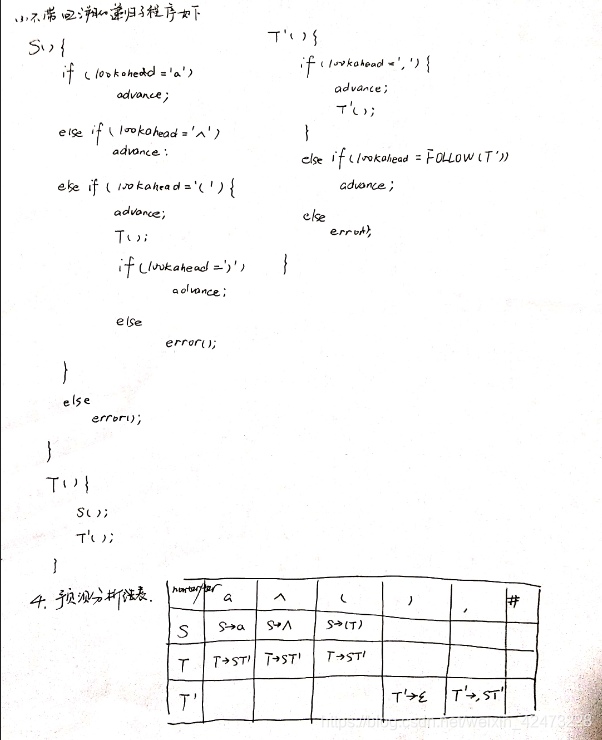 (1)不带回溯的递归子程序如下
S() {
if (lookahead = 'a')
advance;
else if (lookahead = '∧')
advance:
else if (lookahead = '(') {
advance;
T();
if (lookahead = ')')
advance;
else
error();
}
else
error();
}
T() {
S();
T'();
}
T'() {
if (lookahead = ',') {
advance;
T'();
}
else if (lookahead = FOLLOW(T'))
advance;
else
error();
}
4. 预测分析表.
a ∧ ( ) , #
S S→a S→∧ S→(T)
T T→ST' T→ST' T→ST'
T' T'→ε T'→,ST'
https://blog.csdn.net/weixin_42473228